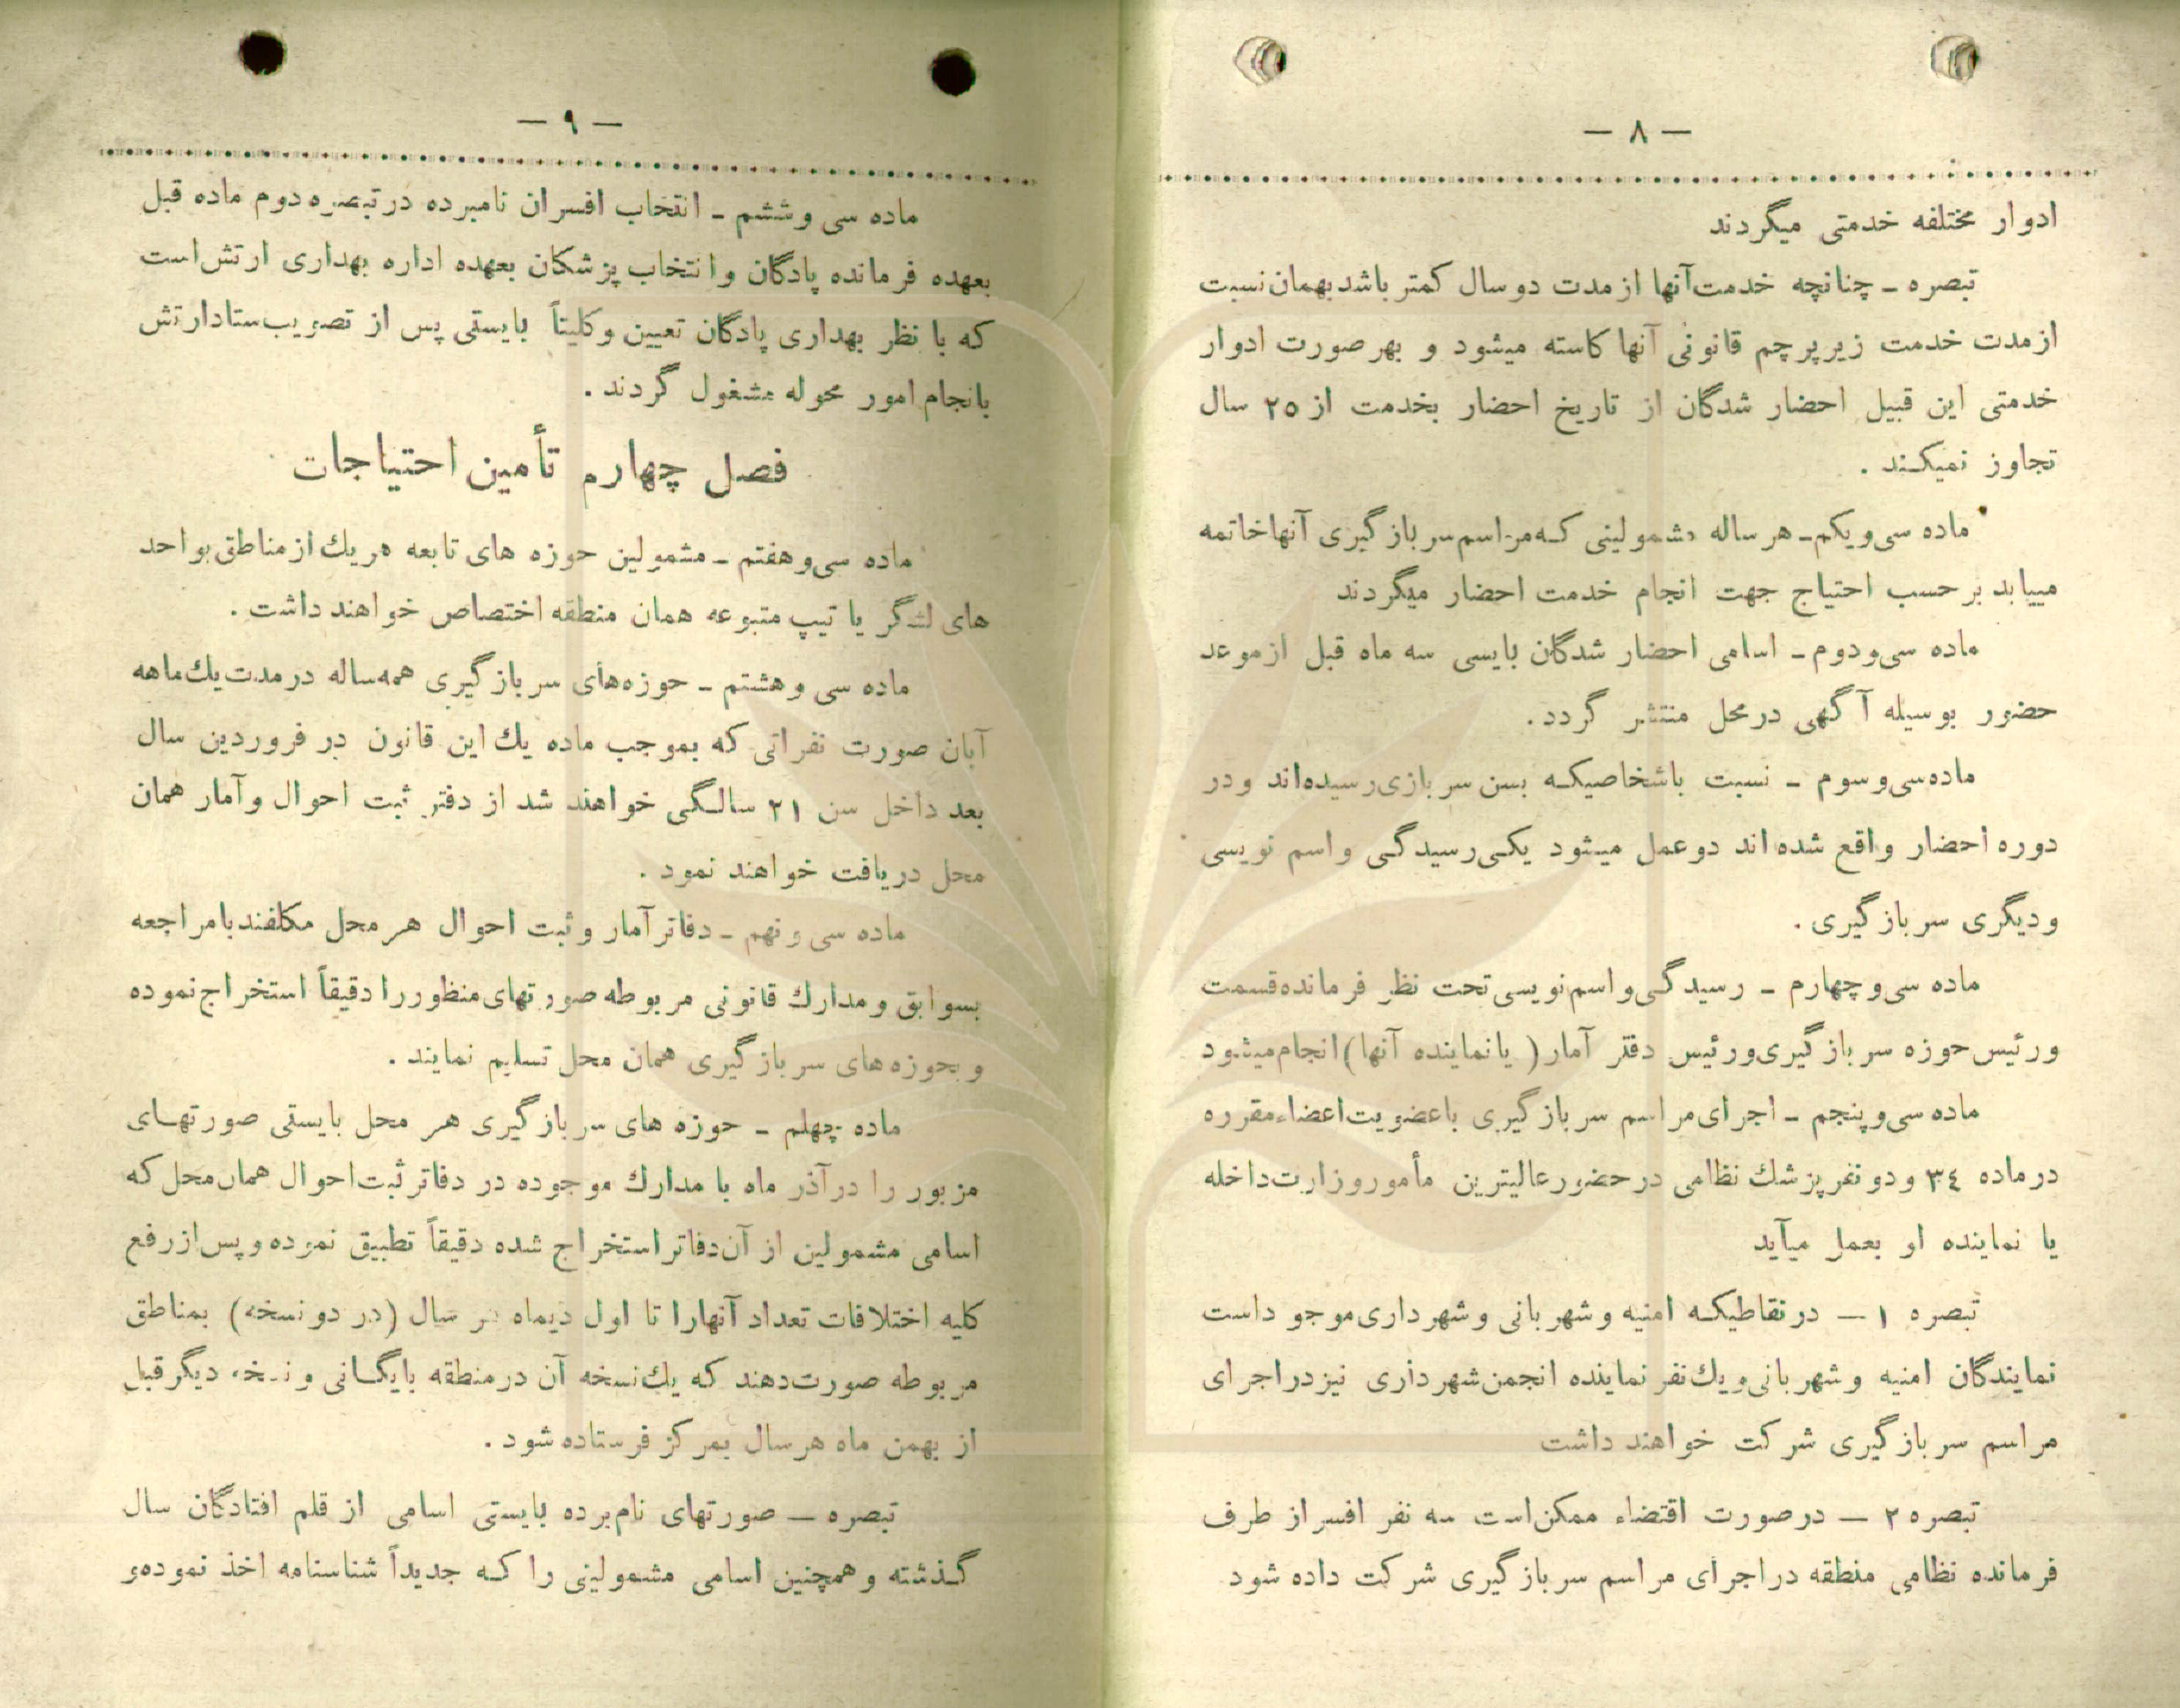 — ۸ —
ادوار مختلفه خدمتی میگردند
تبصره ـ چنانچه خدمت آنها از مدت دو سال کمتر باشد بهمان نسبت
از مدت خدمت زیر پرچم قانونی آنها کاسته میشود و بهر صورت ادوار
خدمتی این قبیل احضار شدگان از تاریخ احضار بخدمت از ۲۵ سال
تجاوز نمیکند .
ماده سی و یکم ـ هر ساله مشمولینی که مراسم سرباز گیری آنها خاتمه
مییابد بر حسب احتیاج جهت انجام خدمت احضار میگردند
ماده سی و دوم ـ اسامی احضار شدگان بایسی سه ماه قبل از موعد
حضور بوسیله آگهی در محل منتشر گردد .
ماده سی و سوم ـ نسبت باشخاصیکه بسن سربازی رسیده‌اند و در
دوره احضار واقع شده اند دو عمل میشود یکی رسیدگی و اسم نویسی
و دیگری سرباز گیری .
ماده سی و چهارم ـ رسیدگی و اسم نویسی تحت نظر فرمانده قسمت
و رئیس حوزه سرباز گیری و رئیس دفتر آمار ( یا نماینده آنها ) انجام میشود
ماده سی و پنجم ـ اجرای مراسم سرباز گیری با عضویت اعضاء مقرره
در ماده ۳٤ و دو نفر پزشك نظامی در حضور عالیترین مأمور وزارت داخله
یا نماینده او بعمل میآید
تبصره ۱ — در نقاطیکه امنیه و شهربانی و شهرداری موجو داست
نمایندگان امنیه و شهربانی و یك نفر نماینده انجمن شهرداری نیز در اجرای
مراسم سرباز گیری شرکت خواهند داشت
تبصره ۲ — در صورت اقتضاء ممکن است سه نفر افسر از طرف
فرمانده نظامی منطقه در اجرای مراسم سرباز گیری شرکت داده شود
— ۹ —
ماده سی و ششم ـ انتخاب افسران نامبرده در تبصره دوم ماده قبل
بعهده فرمانده پادگان و انتخاب پزشکان بعهده اداره بهداری ارتش است
که با نظر بهداری پادگان تعیین و کلیتاً بایستی پس از تصویب ستاد ارتش
بانجام امور محوله مشغول گردند .
فصل چهارم تأمین احتیاجات
ماده سی و هفتم ـ مشمولین حوزه های تابعه هر یك از مناطق بواحد
های لشگر یا تیپ متبوعه همان منطقه اختصاص خواهند داشت .
ماده سی و هشتم ـ حوزه‌های سرباز گیری همه ساله در مدت یك ماهه
آبان صورت نفراتی که بموجب ماده یك این قانون در فروردین سال
بعد داخل سن ۲۱ سالگی خواهند شد از دفتر ثبت احوال و آمار همان
محل دریافت خواهند نمود .
ماده سی و نهم ـ دفاتر آمار و ثبت احوال هر محل مکلفند با مراجعه
بسوابق و مدارك قانونی مربوطه صورتهای منظور را دقیقاً استخراج نموده
و بحوزه های سرباز گیری همان محل تسلیم نمایند .
ماده چهلم ـ حوزه های سرباز گیری هر محل بایستی صورتهای
مزبور را در آذر ماه با مدارك موجوده در دفاتر ثبت احوال همان محل که
اسامی مشمولین از آن دفاتر استخراج شده دقیقاً تطبیق نموده و پس از رفع
کلیه اختلافات تعداد آنهارا تا اول دیماه هر سال (در دو نسخه) بمناطق
مربوطه صورت دهند که یك نسخه آن در منطقه بایگانی و نسخه دیگر قبل
از بهمن ماه هر سال بمرکز فرستاده شود .
تبصره — صورتهای نام برده بایستی اسامی از قلم افتادگان سال
گذشته و همچنین اسامی مشمولینی را که جدیداً شناسنامه اخذ نموده و